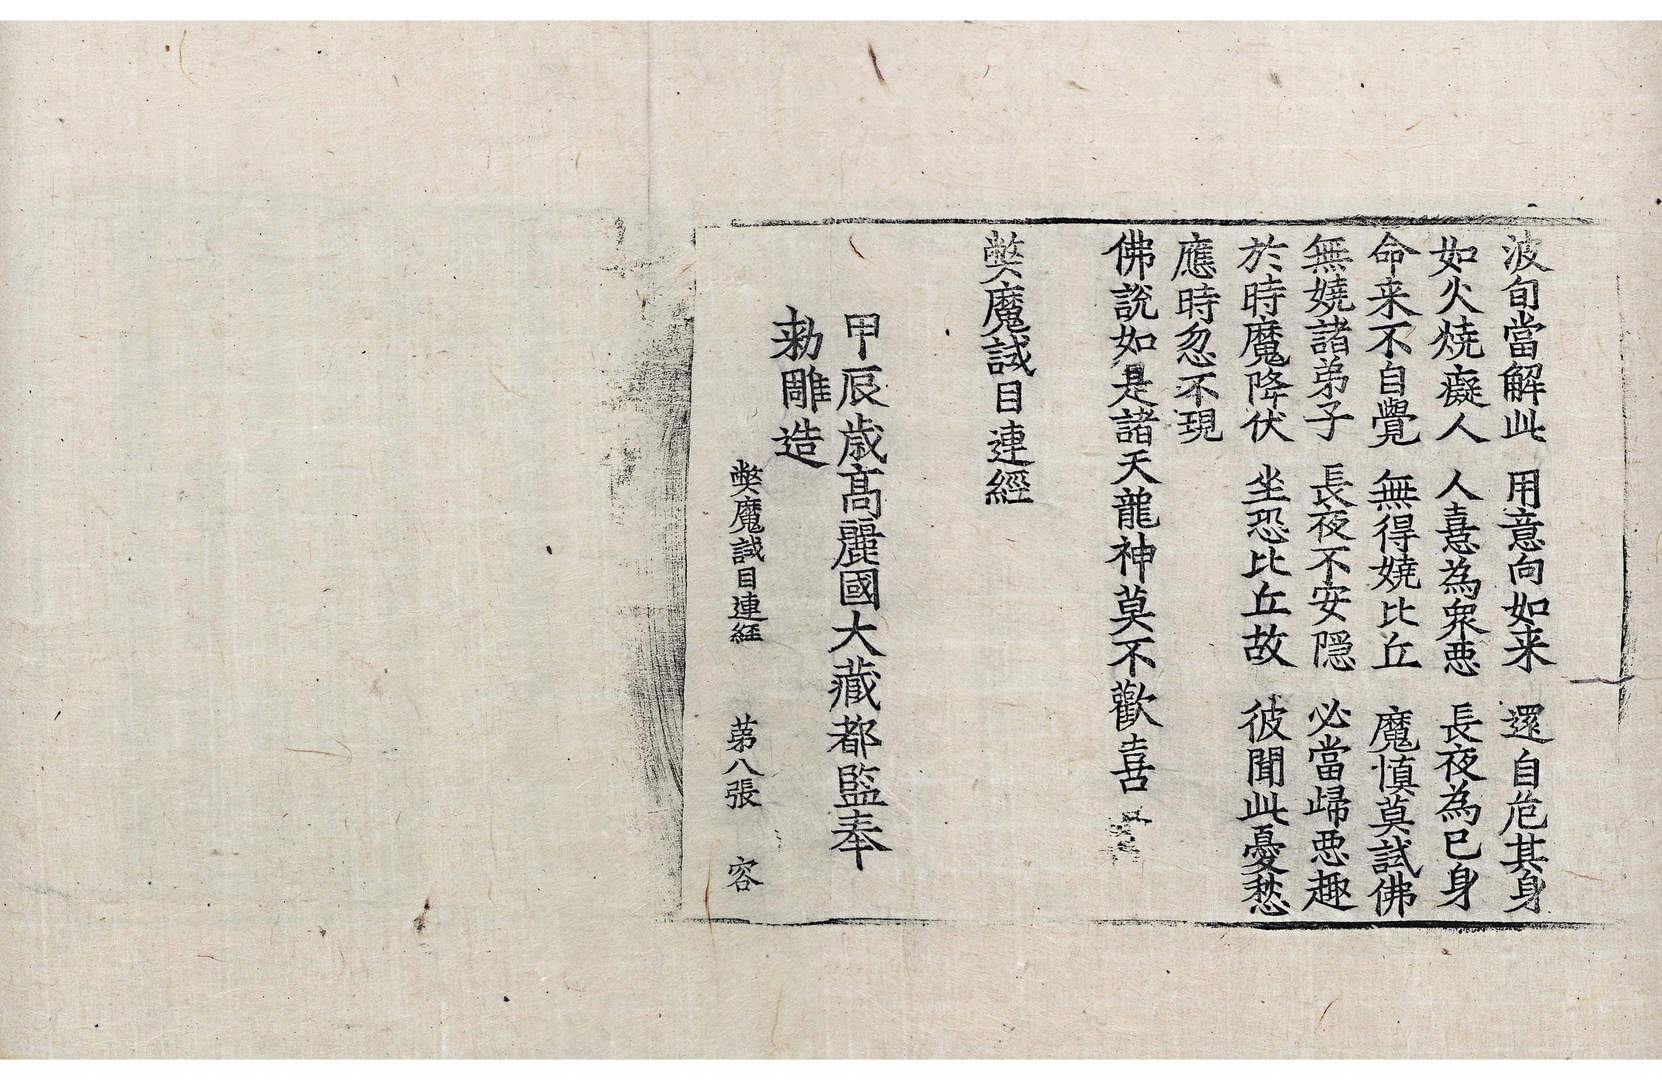 波旬當解此　用意向如来　還自危其身
如火燒癡人　人憙為衆悪　長夜為已身
命来不自覺　無得嬈比丘　魔慎莫試佛
無嬈諸弟子　長夜不安隠　必當歸悪趣
於時魔降伏　坐恐比丘故　彼聞此憂愁
應時忽不現
佛說如是諸天龍神莫不歡喜
弊魔試目連經
甲辰歳髙麗國大藏都監奉
勑雕造
弊魔試目連経　第八張　容